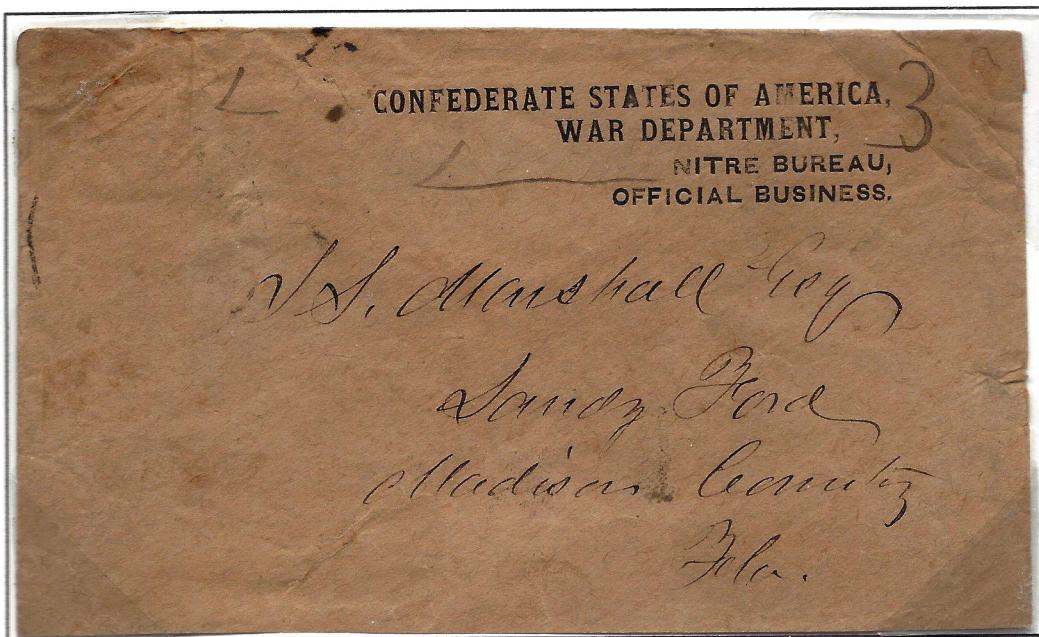 CONFEDERATE STATES OF AMERICA,
3
WAR DEPARTMENT,
NITRE BUREAU,
OFFICIAL BUSINESS.
J S. Marshall Esq
Sandy Ford
Madison County
Fla.